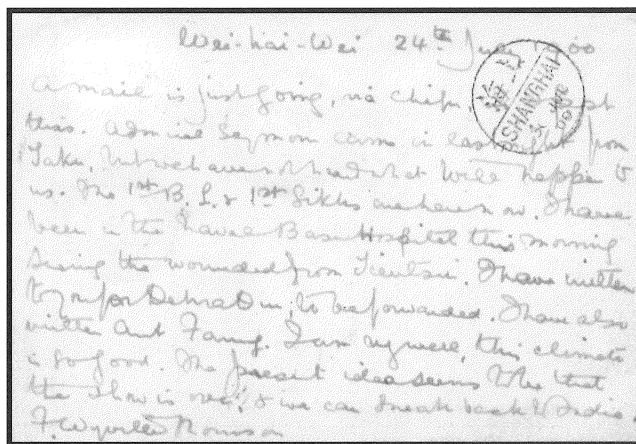 Wei-hai-Wei 24th 1900
A mail is just going, via
SHANGHAI
this. Admiral Seymour came in last night from
Taku, but we have not heard what will happen to
us. The 1st B. L. & 1st Sikhs are here now. I have
been in the Naval Base Hospital this morning
seeing the wounded from Tientsin. I have written
to you for Dehra Dun, to be forwarded. I have also
written Aunt Fanny. I am very well, this climate
is so good. The present idea seems to be that
the show is over, & we can sneak back to India.
F. Wyville Thomson